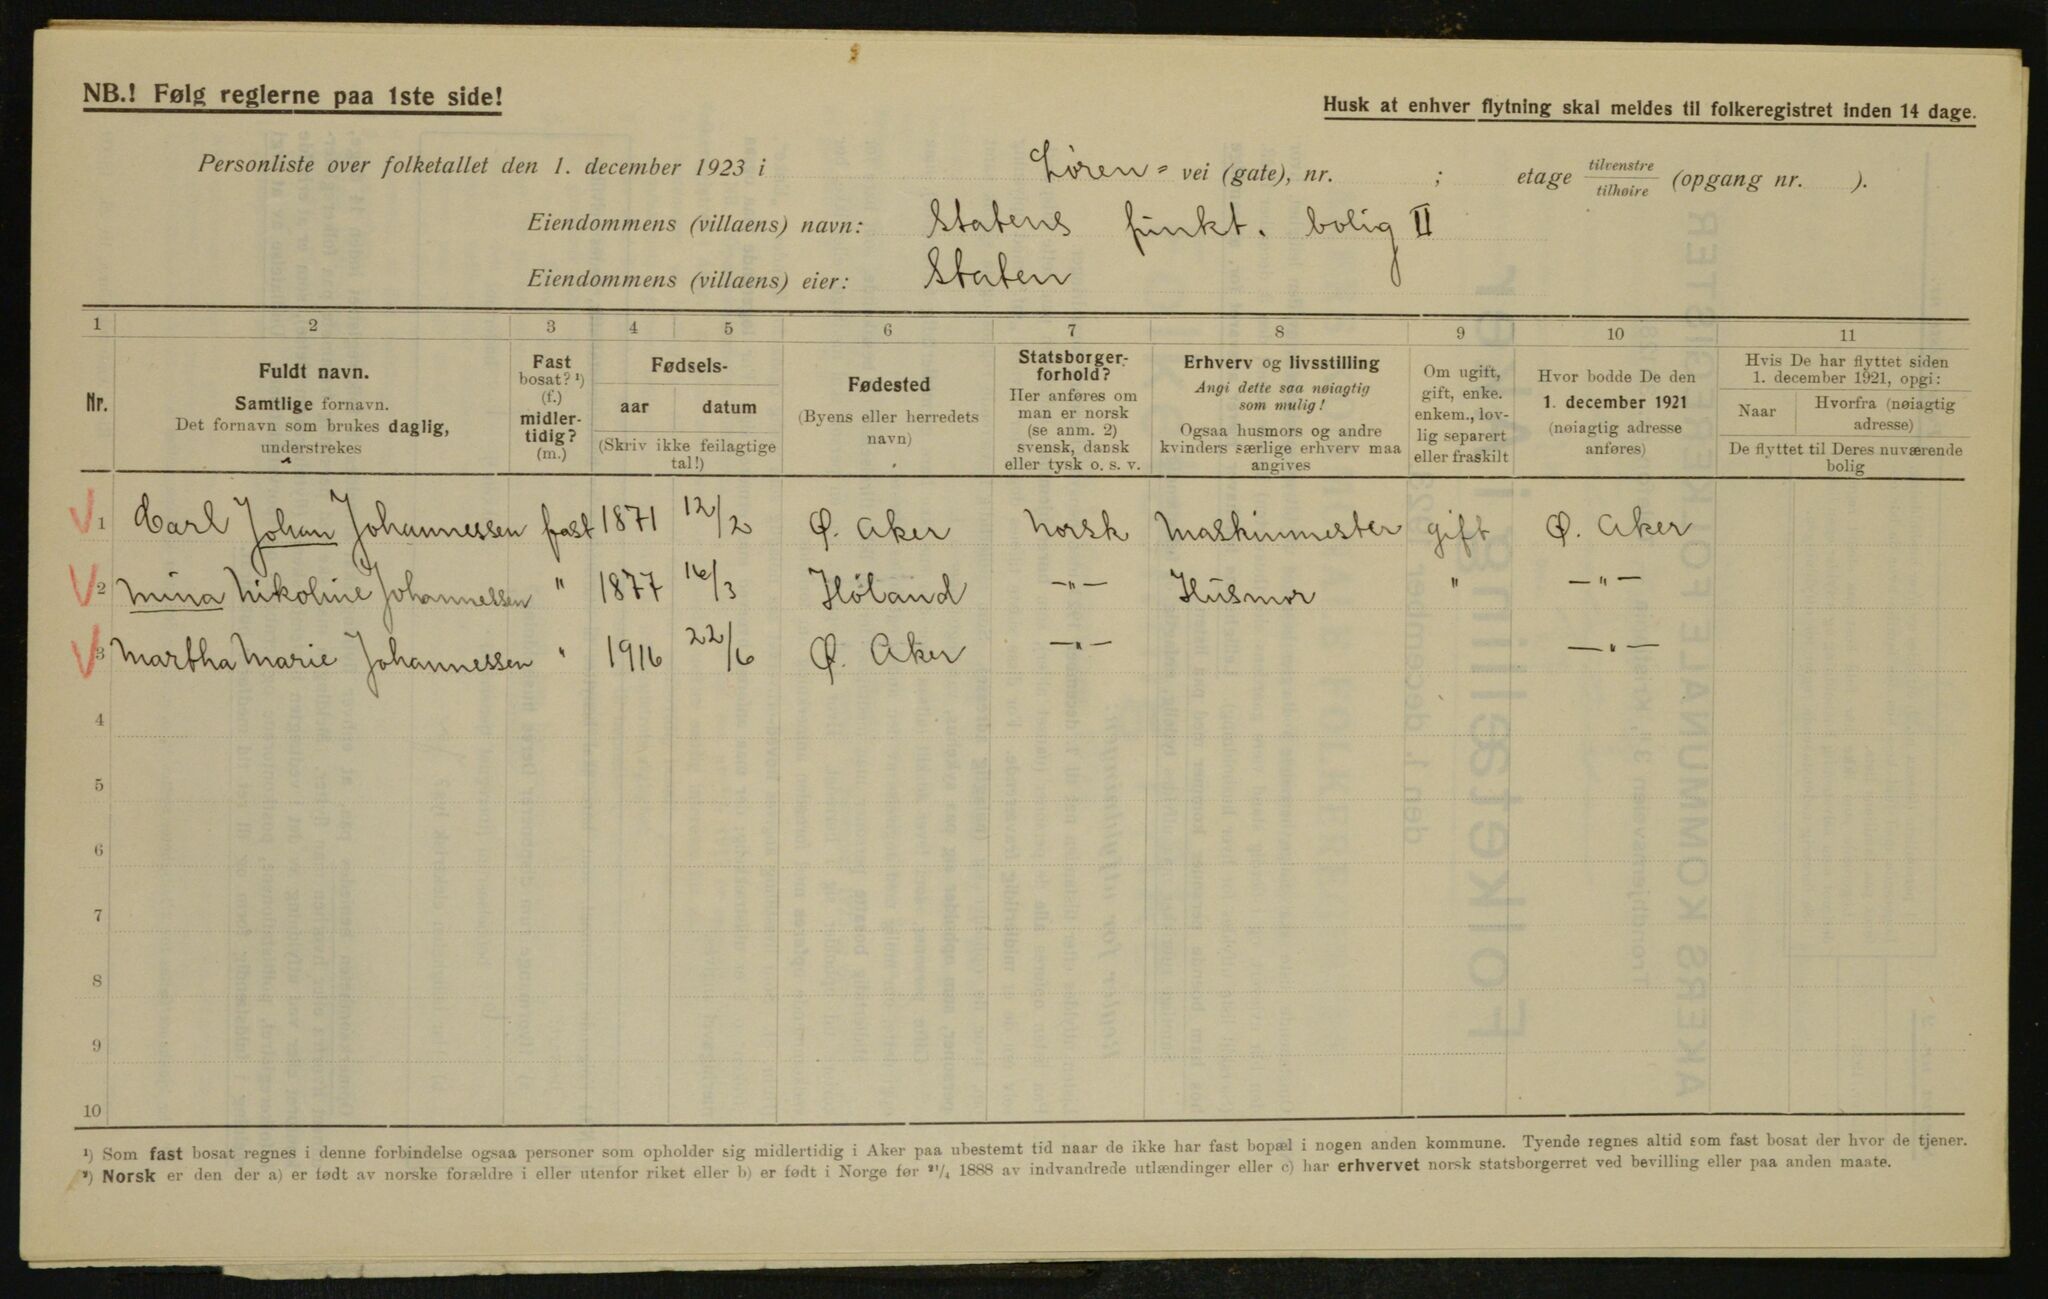 NB.! Følg reglerne paa 1ste side!
Husk at enhver flytning skal meldes til folkeregistret inden 14 dage.
Personliste over folketallet den 1. december 1923 i Løren= vei (gate), nr. ; etage tilvenstre/tilhøire (opgang nr. ).
Eiendommens (villaens) navn: Statens funkt. bolig II
Eiendommens (villaens) eier: Staten
1 2 3 4 5 6 7 8 9 10 11
Nr.
Fuldt navn.
Samtlige fornavn.
Det fornavn som brukes daglig,
understrekes
Fast
bosat? ¹)
(f.)
midler-
tidig?
(m.)
Fødsels-
aar datum
(Skriv ikke feilagtige
tal!)
Fødested
(Byens eller herredets
navn)
Statsborger-
forhold?
Her anføres om
man er norsk
(se anm. 2)
svensk, dansk
eller tysk o. s. v.
Erhverv og livsstilling
Angi dette saa nøiagtig
som mulig!
Ogsaa husmors og andre
kvinders særlige erhverv maa
angives
Om ugift,
gift, enke.
enkem., lov-
lig separert
eller fraskilt
Hvor bodde De den
1. december 1921
(nøiagtig adresse
anføres)
Hvis De har flyttet siden
1. december 1921, opgi:
Naar Hvorfra (nøiagtig
adresse)
De flyttet til Deres nuværende
bolig
1 Carl Johan Johannessen fast 1871 12/2 Ø. Aker Norsk Maskinmester gift Ø. Aker
2 Mina Nikoline Johannessen " 1877 16/3 Høland —"— Husmor " —"—
3 Martha Marie Johannessen " 1916 22/6 Ø. Aker —"— —"—
4
5
6
7
8
9
10
¹) Som fast bosat regnes i denne forbindelse ogsaa personer som opholder sig midlertidig i Aker paa ubestemt tid naar de ikke har fast bopæl i nogen anden kommune. Tyende regnes altid som fast bosat der hvor de tjener.
²) Norsk er den der a) er født av norske forældre i eller utenfor riket eller b) er født i Norge før ²¹/₄ 1888 av indvandrede utlændinger eller c) har erhvervet norsk statsborgerret ved bevilling eller paa anden maate.